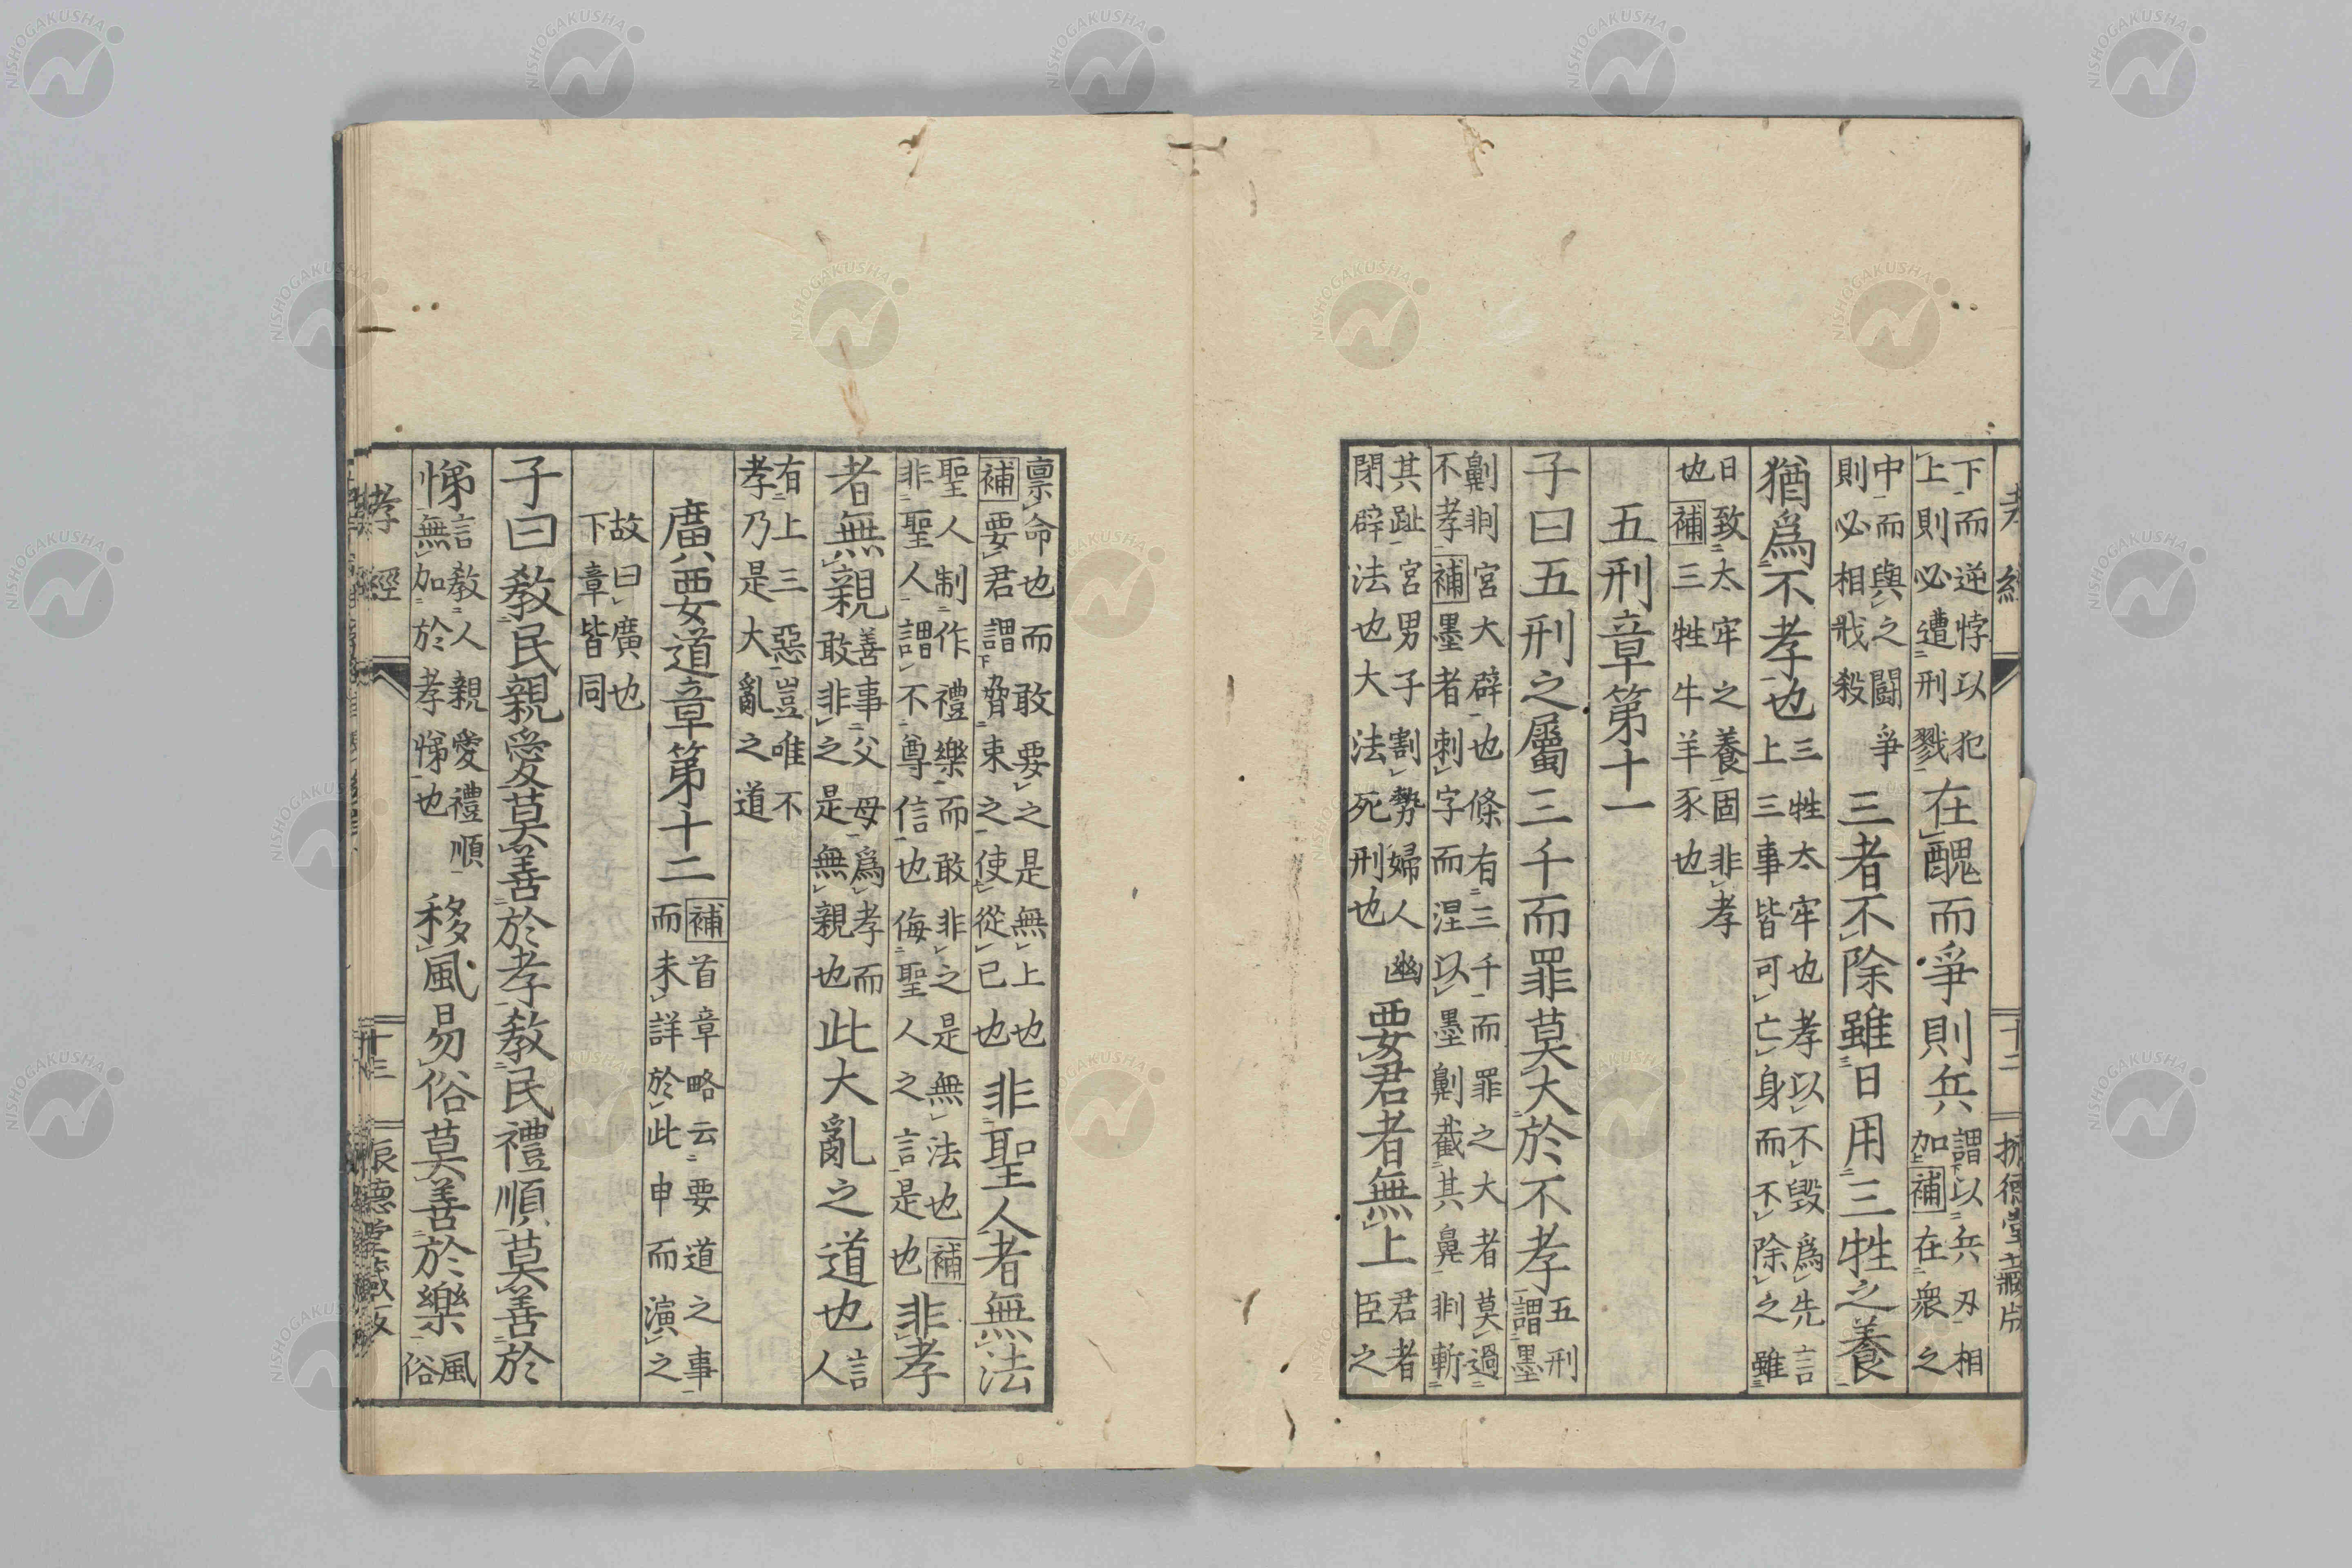 孝經 十二 振德堂藏版
下而逆悖以犯上則必遭刑戮在醜而爭則兵謂以兵刃相加補在衆之
中而與之鬪爭則必相戕殺三者不除雖日用三牲之養
猶爲不孝也三牲太牢也孝以不毀爲先言上三事皆可亡身而不除之雖
日致太牢之養固非孝也補三牲牛羊豕也
五刑章第十一
子曰五刑之屬三千而罪莫大於不孝五刑謂墨
劓剕宮大辟也條有三千而罪之大者莫過不孝補墨者刺字而涅以墨劓截其鼻剕斬
其趾宮男子割勢婦人幽閉辟法也大法死刑也要君者無上君者臣之
稟命也而敢要之是無上也補要君謂脅束之使從已也非聖人者無法
聖人制作禮樂而敢非之是無法也補非聖人謂不尊信也侮聖人之言是也非孝
者無親善事父母爲孝而敢非之是無親也此大亂之道也言人
有上三惡豈唯不孝乃是大亂之道
廣要道章第十二補首章略云要道之事而未詳於此申而演之
故曰廣也下章皆同
子曰敎民親愛莫善於孝敎民禮順莫善於
悌言敎人親愛禮順無加於孝悌也移風易俗莫善於樂風俗
孝經 十三 振德堂藏版
NISHOGAKUSHA